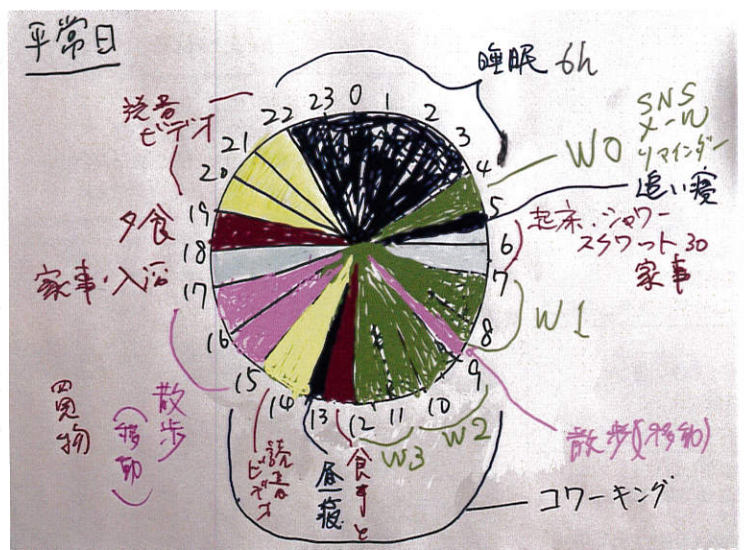 平常日
睡眠 6h
SNS
メール
リマインダー
W0
追い寝
起床・シャワー
スクワット30
家事
W1
散歩(移動)
W2
W3
コワーキング
食事と
昼寝
読書
ビデオ
散歩
(移動)
買物
家事・入浴
夕食
読書
ビデオ
0
1
2
3
4
5
6
7
8
9
10
11
12
13
14
15
16
17
18
19
20
21
22
23